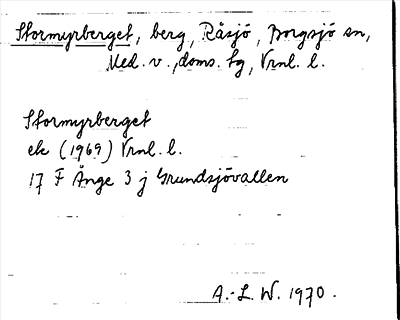 Stormyrberget, berg, Råsjö, Borgsjö sn,
Med. v., doms. tg, Vrnl. l.
Stormyrberget
ek (1969) Vrnl. l.
17 F Ånge 3 j Grundsjövallen
A.-L. W. 1970.